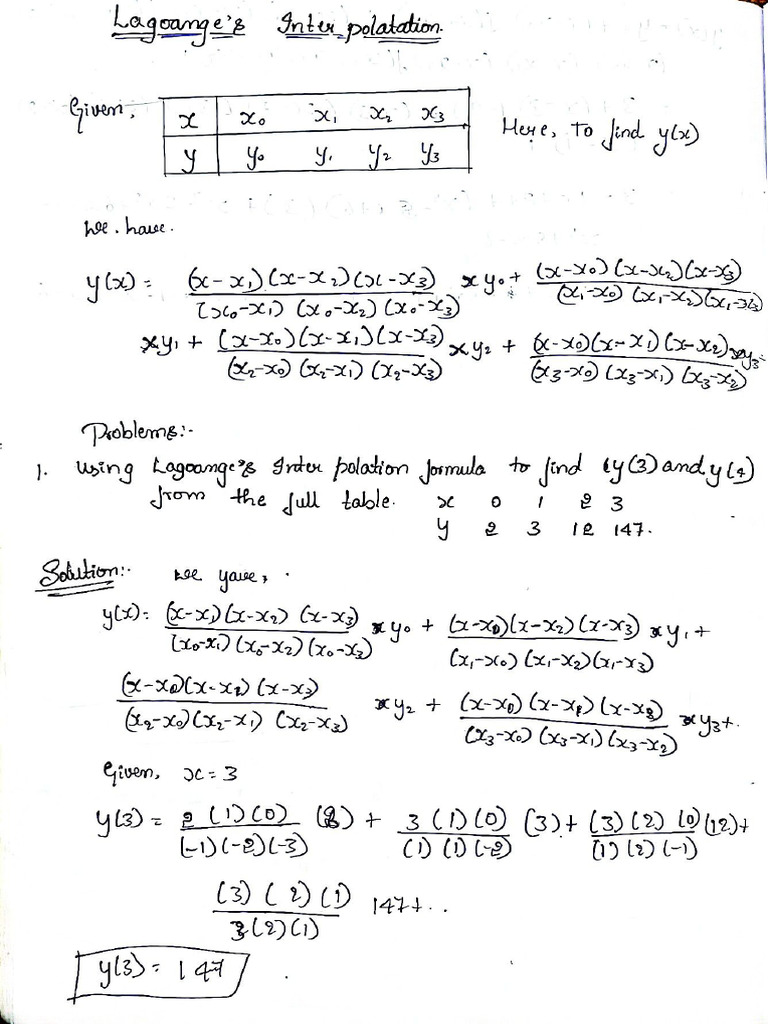 Lagoange's Inter polatation.
Given, x x₀ x₁ x₂ x₃ Here, To find y(x)
y y₀ y₁ y₂ y₃
we have.
y(x) = (x-x₁)(x-x₂)(x-x₃) / (x₀-x₁)(x₀-x₂)(x₀-x₃) × y₀ + (x-x₀)(x-x₂)(x-x₃) / (x₁-x₀)(x₁-x₂)(x₁-x₃)
× y₁ + (x-x₀)(x-x₁)(x-x₃) / (x₂-x₀)(x₂-x₁)(x₂-x₃) × y₂ + (x-x₀)(x-x₁)(x-x₂) / (x₃-x₀)(x₃-x₁)(x₃-x₂) × y₃
Problems:-
1. Using Lagoange's Inter polation formula to find y(3) and y(4)
from the full table. x 0 1 2 3
y 2 3 12 147.
Solution:- we yave,
y(x) = (x-x₁)(x-x₂)(x-x₃) / (x₀-x₁)(x₀-x₂)(x₀-x₃) × y₀ + (x-x₀)(x-x₂)(x-x₃) / (x₁-x₀)(x₁-x₂)(x₁-x₃) × y₁ +
(x-x₀)(x-x₁)(x-x₃) / (x₂-x₀)(x₂-x₁)(x₂-x₃) × y₂ + (x-x₀)(x-x₁)(x-x₂) / (x₃-x₀)(x₃-x₁)(x₃-x₂) × y₃ +.
Given, x = 3
y(3) = 2(1)(0) / (-1)(-2)(-3) (2) + 3(1)(0) / (1)(1)(-2) (3) + (3)(2)(0) / (1)(2)(-1) (12) +
(3)(2)(1) / 3(2)(1) 147+..
y(3) = 147